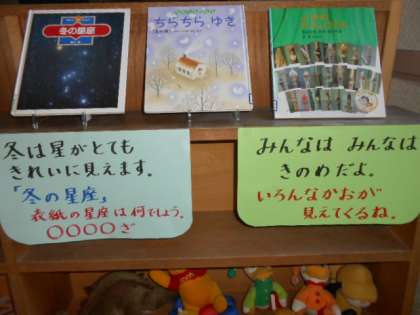 冬の星座
ちらちらゆき
冬は星がとても
きれいに見えます。
「冬の星座」
表紙の星座は何でしょう。
○○○○ざ
みんなは みんなは
きのめだよ。
いろんなかおが
見えてくるね。